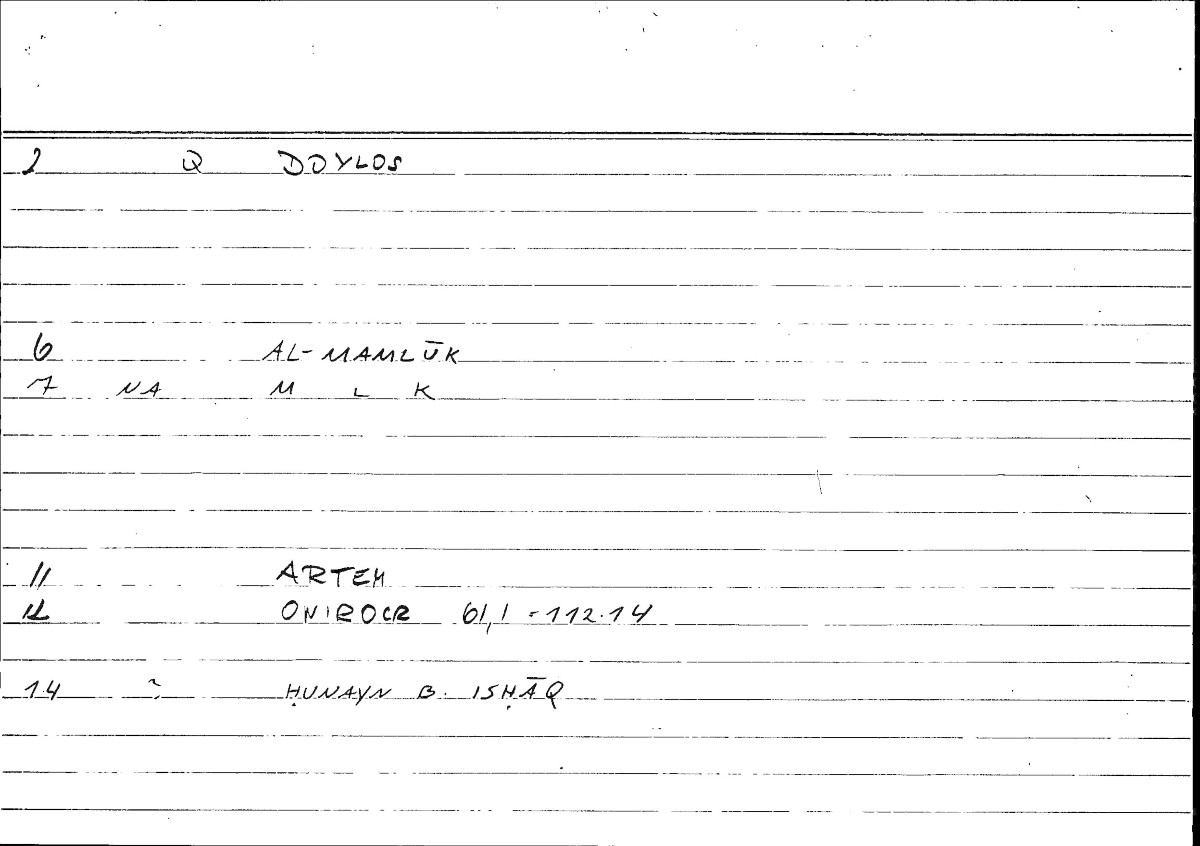 2 Q DOYLOS
6 AL-MAMLŪK
7 NA M L K
11 ARTEM
12 ONIROCR 61,1 = 112.14
14 ~ ḤUNAYN B. ISḤĀQ